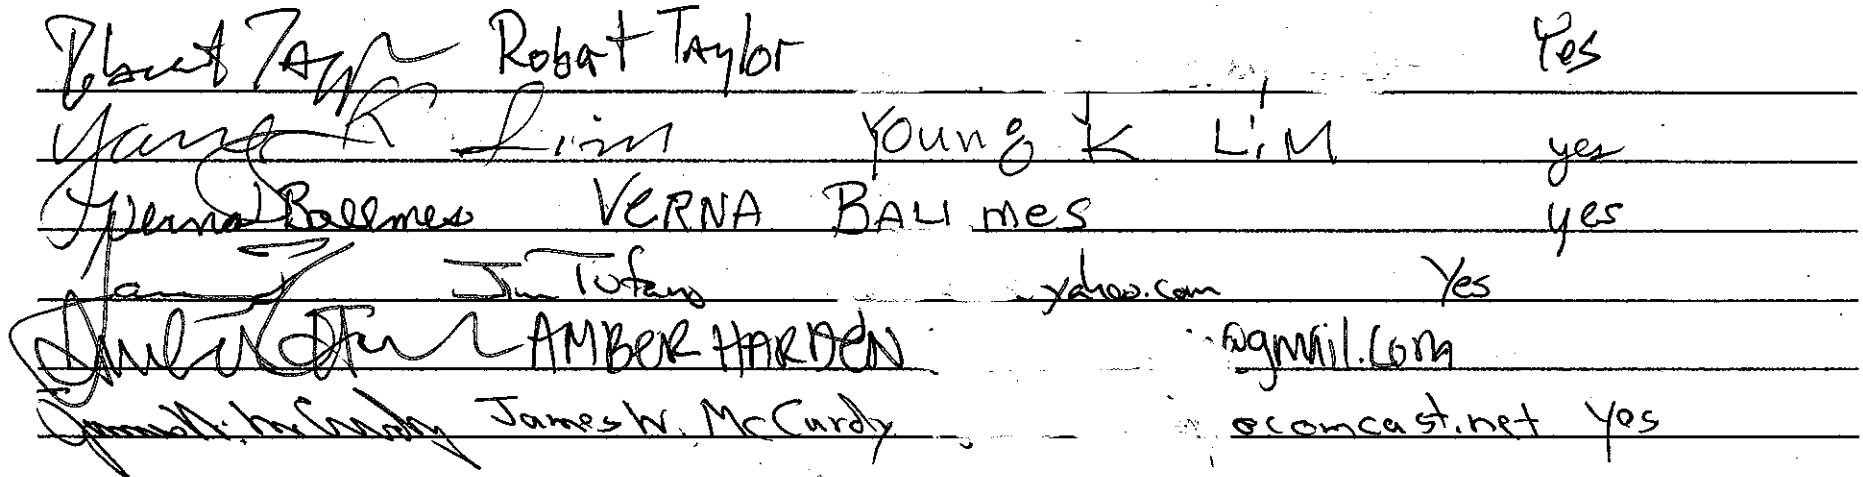 Robert Taylor Robert Taylor Yes
Young K Lim Young K LiM yes
Verna Ballmes VERNA BALLmes yes
Jim Tufano yahoo.com Yes
AMBER HARDEN @gmail.com
James W. McCurdy James W. McCurdy @comcast.net Yes